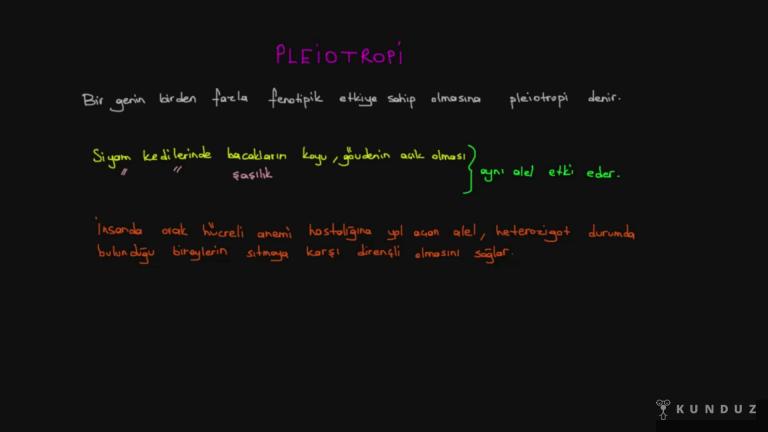 PLEİOTROPİ
Bir genin birden fazla fenotipik etkiye sahip olmasına pleiotropi denir.
Siyam kedilerinde bacakların koyu, gövdenin açık olması
" " şaşılık
aynı alel etki eder.
İnsanda orak hücreli anemi hastalığına yol açan alel, heterozigot durumda
bulunduğu bireylerin sıtmaya karşı dirençli olmasını sağlar.
KUNDUZ